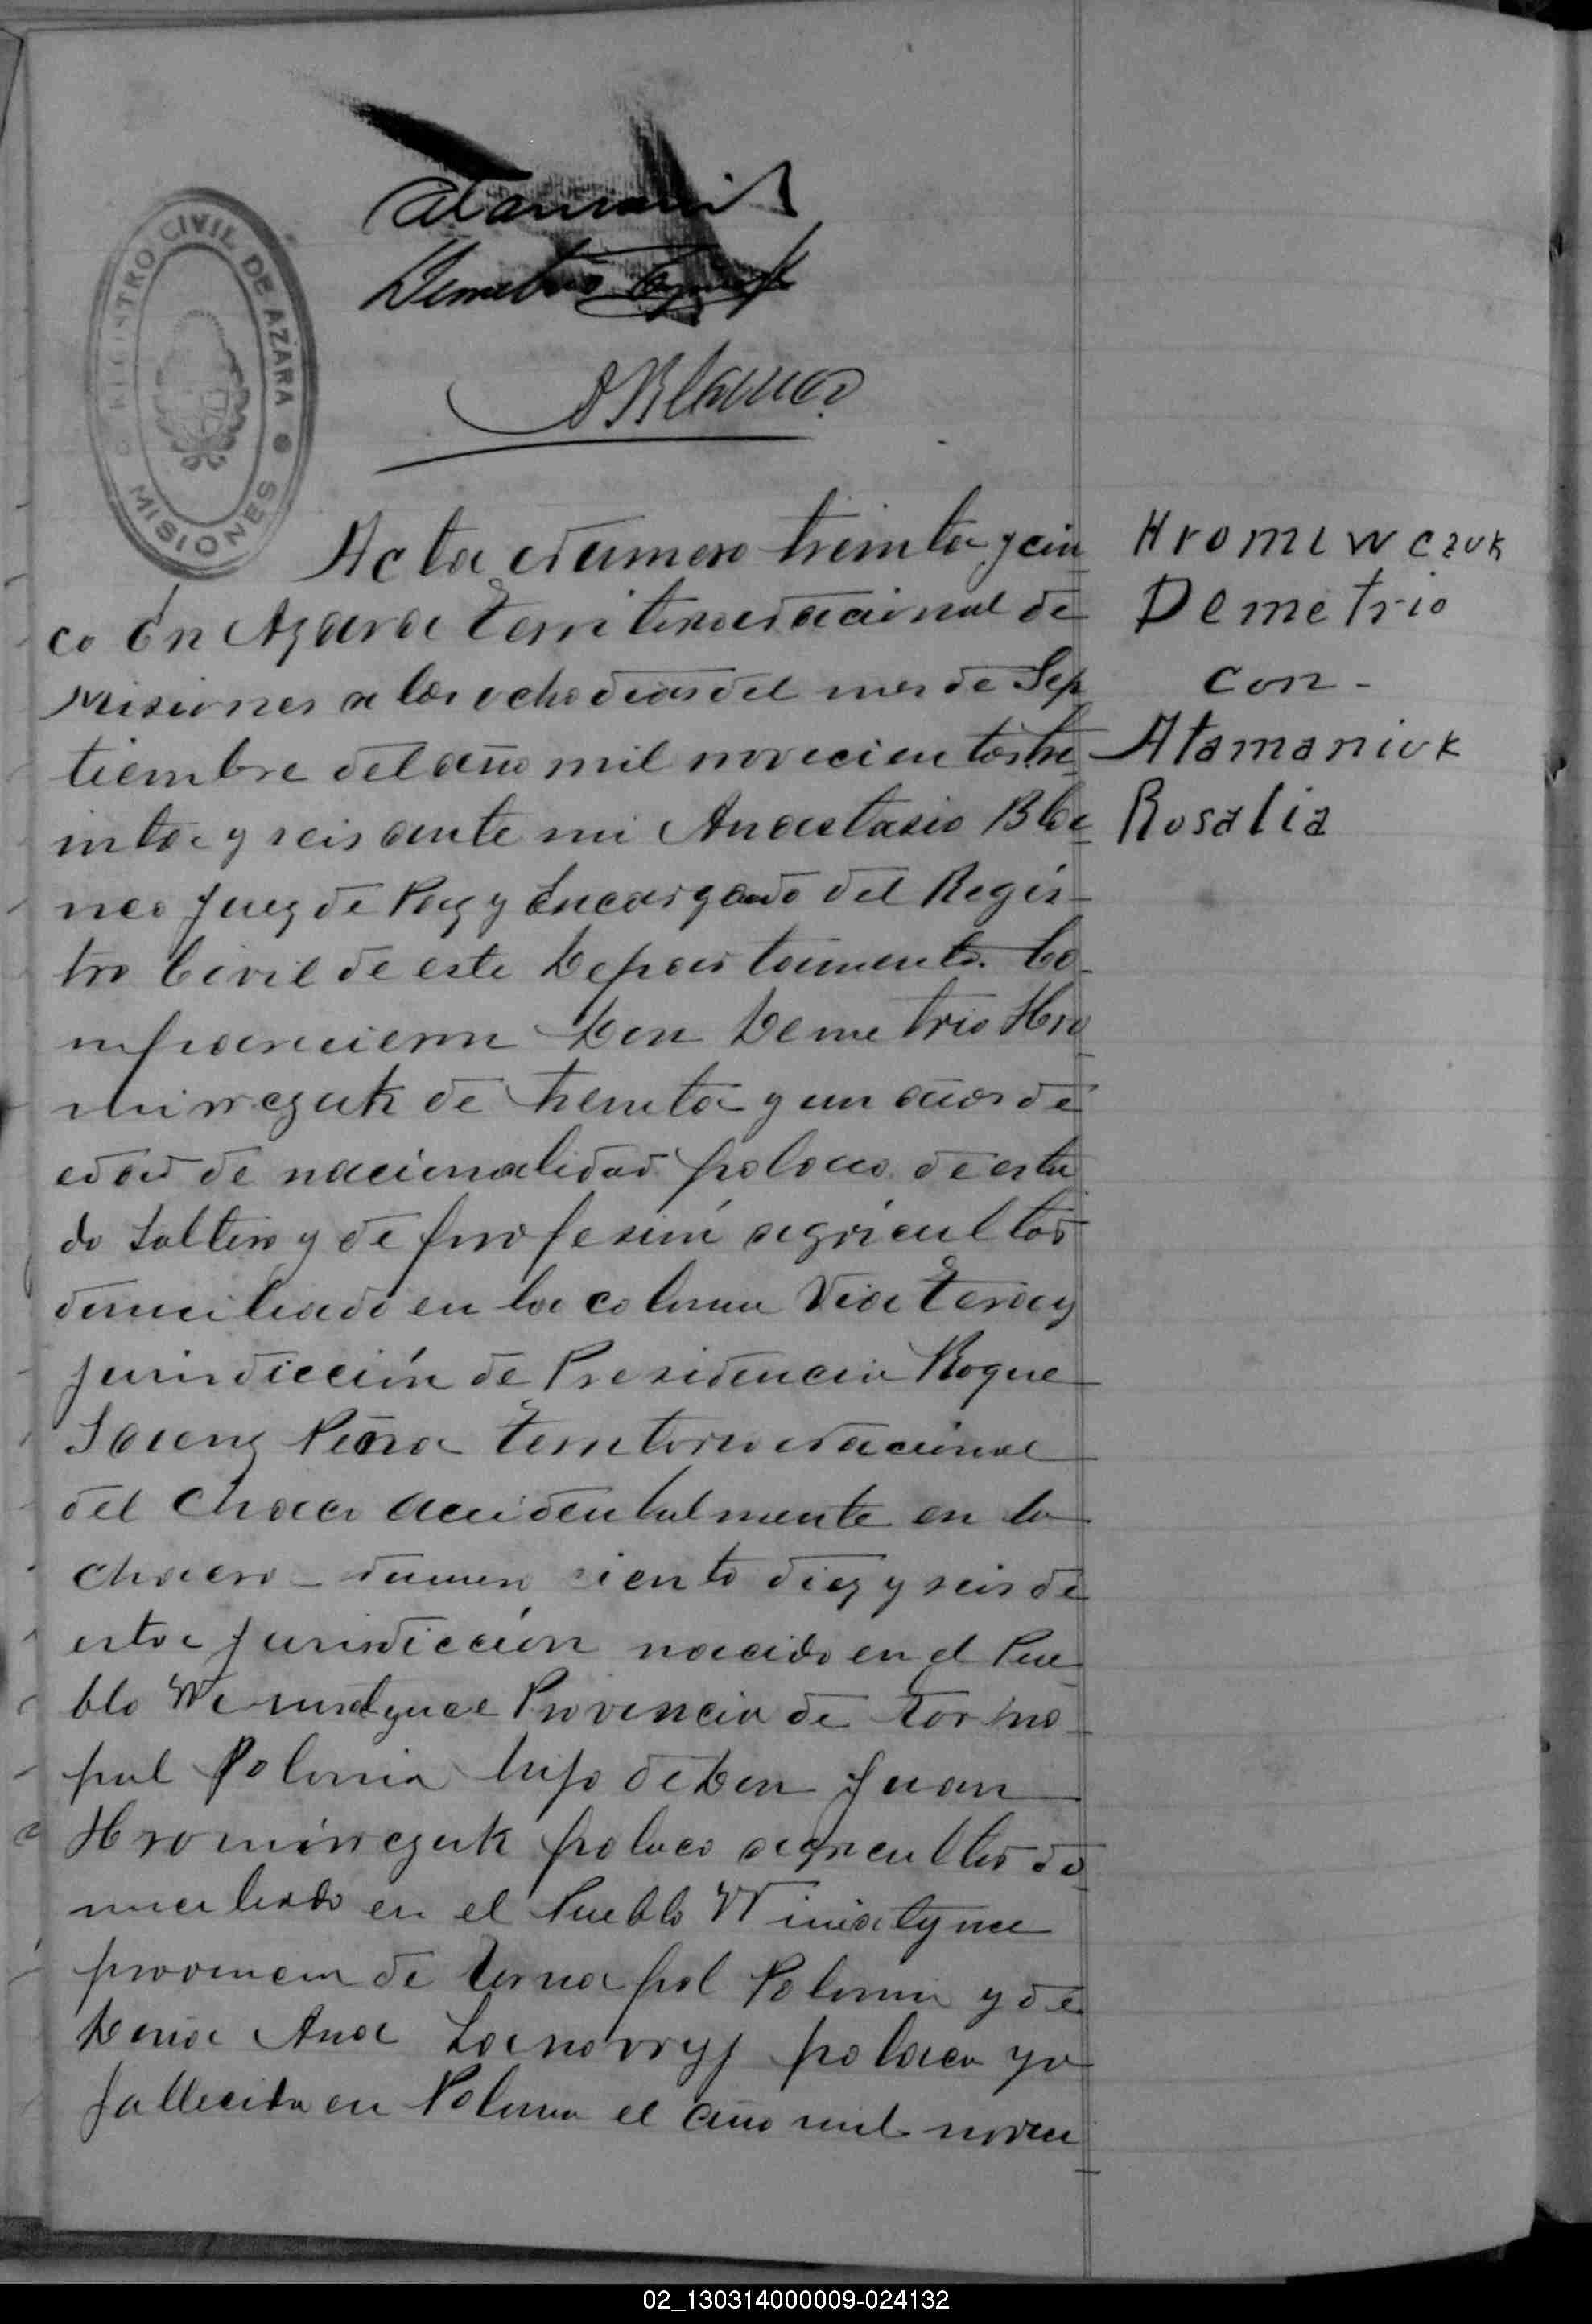 REGISTRO CIVIL DE AZARA
MISIONES
Demetrio
ABlanco
Acta Numero treinta y cin
co En Azara Territorio Nacional de
Misiones a los ocho dias del mes de Sep
tiembre del año mil novecientos tre
inta y seis ante mi Anastasio Bla
nco Juez de Paz y Encargado del Regis
tro Civil de este Departamento. Co
mparecieron Don Demetrio Hro
miwczuk de treinta y un años de
edad de nacionalidad polaca de esta
do Soltero y de profesión agricultor
domiciliado en la colonia Viateray
jurisdicción de Presidencia Roque
Saenz Peña Territorio Nacional
del Chaco accidentalmente en la
chacra numero ciento diez y seis de
esta jurisdicción nacido en el Pue
blo Provincia de Torno
pol Polonia hijo de Don Juan
Hromiwczuk polaco agricultor do
miciliado en el Pueblo Winiatynce
provincia de Tornapol Polonia y de
Doña Ana polaca ya
fallecida en Polonia el año mil novec
Hromiwczuk
Demetrio
con -
Atamaniuk
Rosalia
02_130314000009-024132